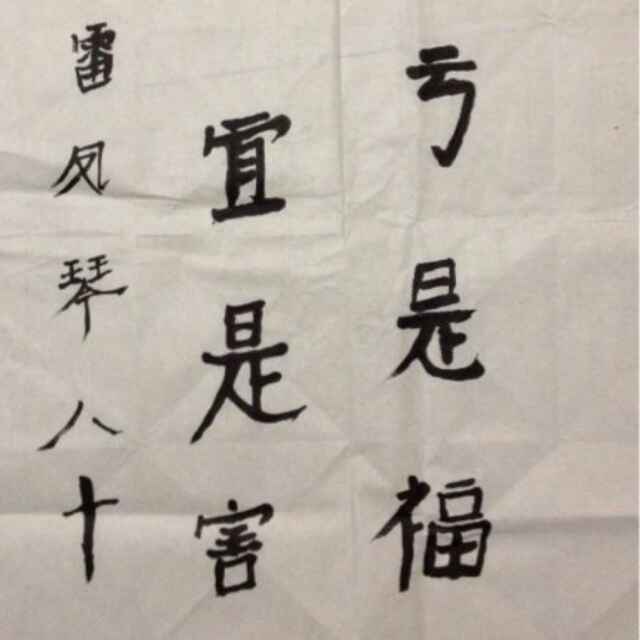 亏是福
宜是害
雷凤琴八十